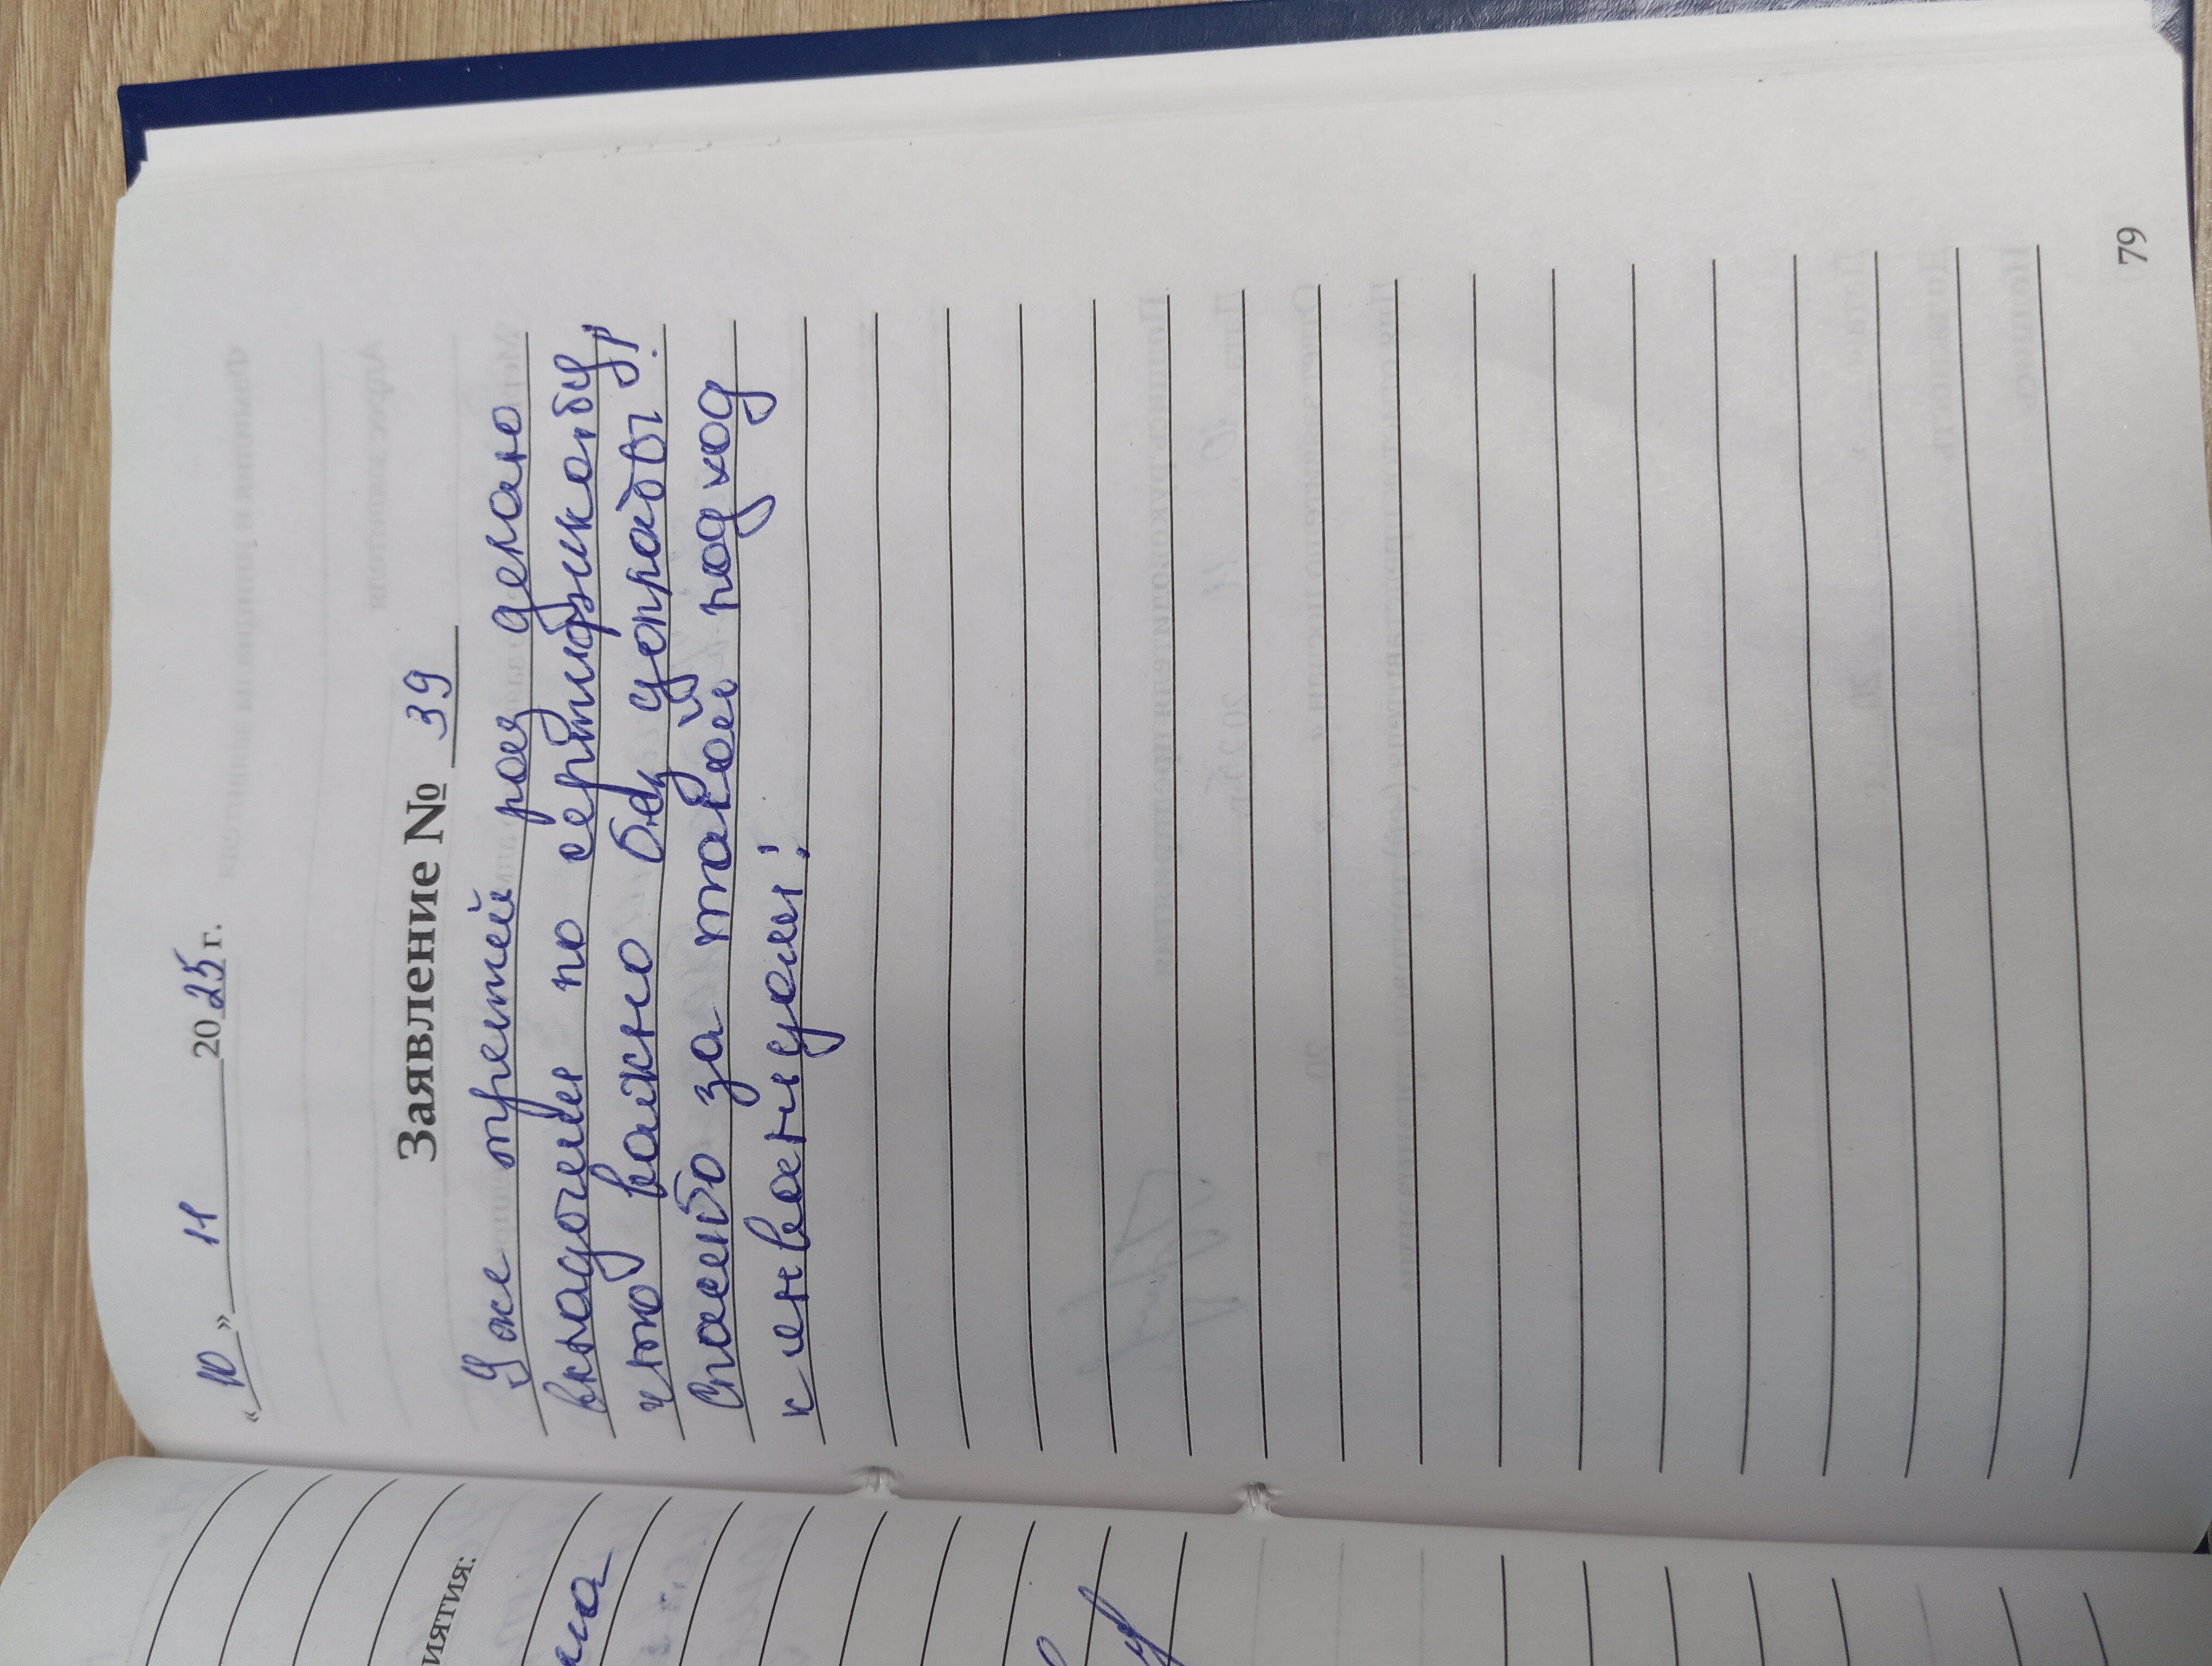 « 10 » 11 20 25 г.
Заявление № 39
Уже третий раз делаю
по сертификату
что важно без доплаты!
Спасибо за такой подход
к инвалидам!
79
иятия: